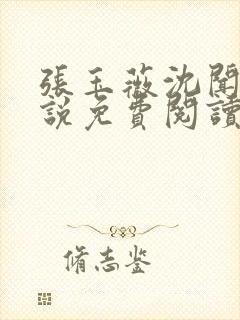 張玉薇沈聞
說免費閱讀
脩志鉴